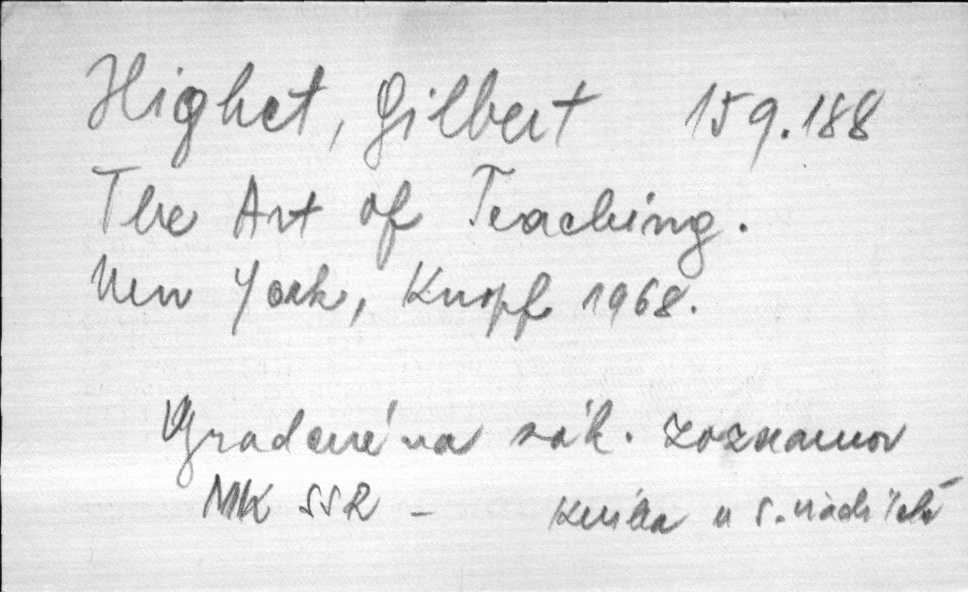 Highet, Gilbert 159.188
The Art of Teaching.
New York, Knopf 1968.
na zák. zoznamov
MK SSR - kniha u s.